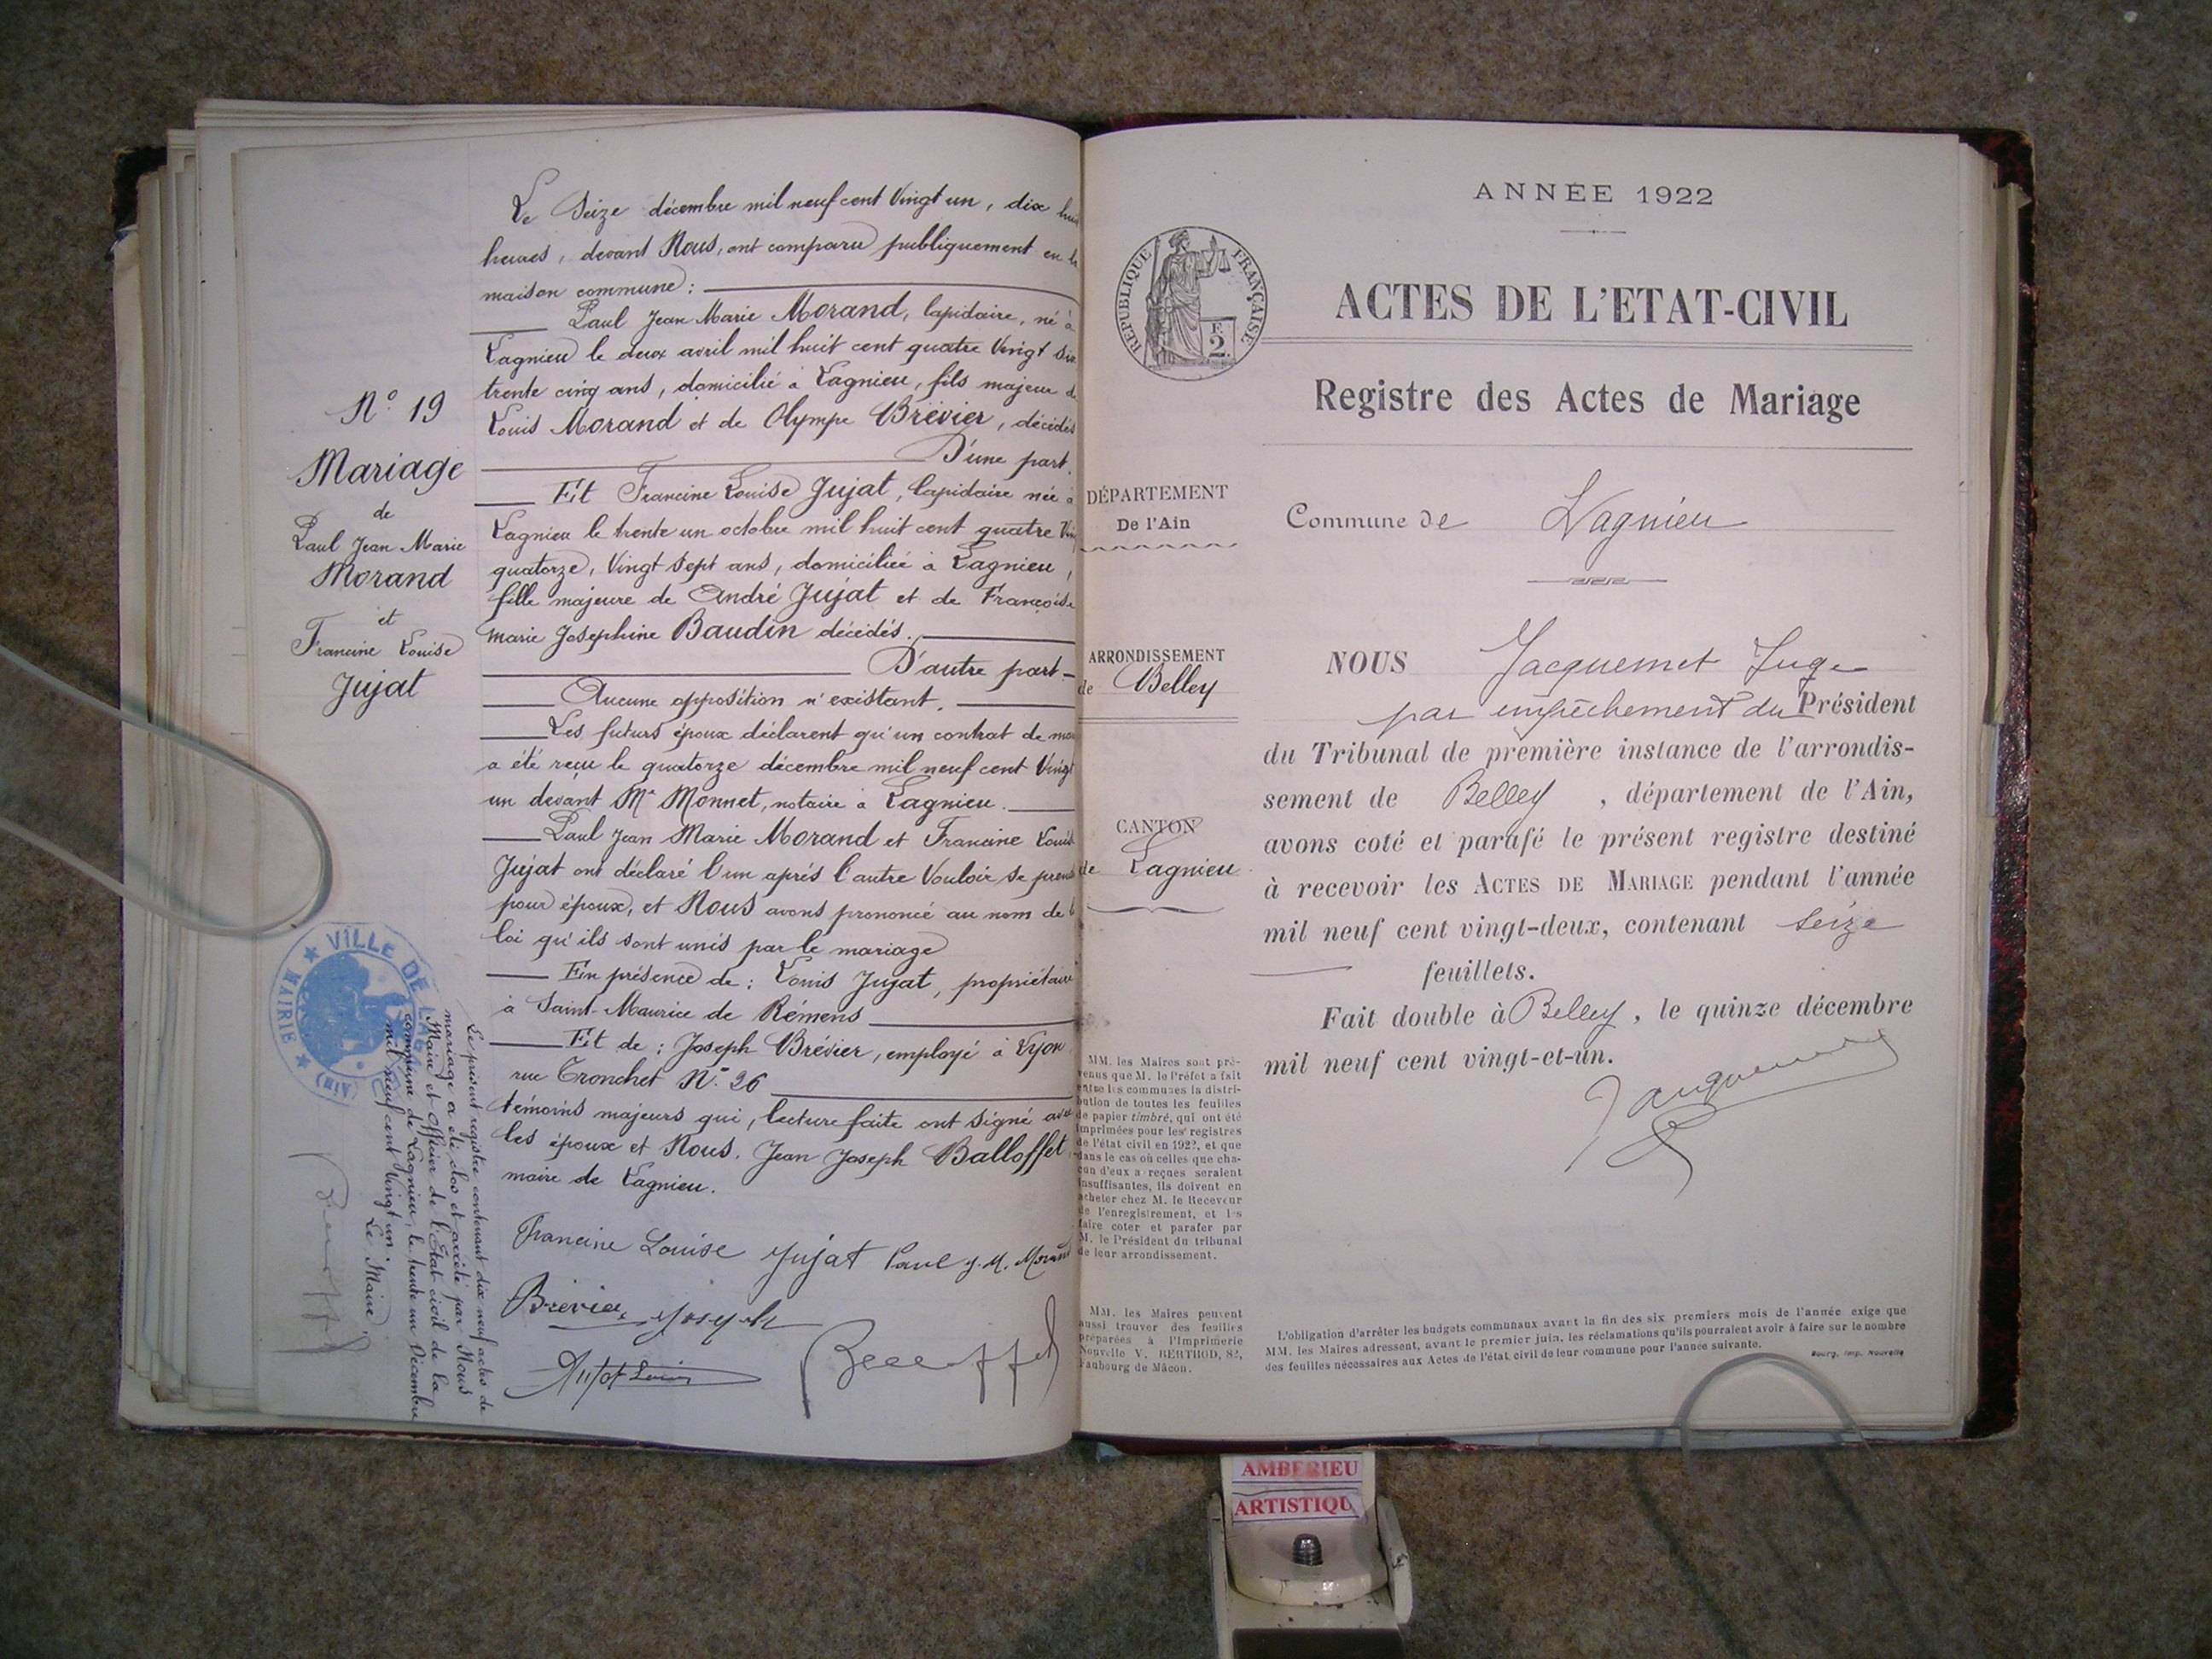 Le Seize décembre mil neuf cent Vingt un, dix
heures, devant Nous, ont comparu publiquement en
maison commune :
Paul Jean Marie Morand, lapidaire, né à
Lagnieu le deux avril mil huit cent quatre Vingt Six
trente cinq ans, domicilié à Lagnieu, fils majeur
Louis Morand et de Olympe Brévier, décédés
D'une part.
Et Francine Louise Jujat, lapidaire née à
Lagnieu le trente un octobre mil huit cent quatre
quatorze, Vingt Sept ans, domiciliée à Lagnieu,
fille majeure de André Jujat et de Françoise
marie Josephine Baudin décédés.
D'autre part
Aucune opposition n'existant.
Les futurs époux déclarent qu'un contrat de
a été reçu le quatorze décembre mil neuf cent Vingt
un devant Me Monnet, notaire à Lagnieu.
Paul Jean Marie Morand et Francine Louise
Jujat ont déclaré l'un après l'autre Vouloir Se
pour époux, et Nous avons prononcé au nom de
loi qu'ils sont unis par le mariage
En présence de : Louis Jujat, propriétaire
à Saint-Maurice de Rémens
Et de : Joseph Brévier, employé à Lyon
rue Tronchet No 26
témoins majeurs qui, lecture faite ont signé avec
les époux et Nous. Jean Joseph Balloffet
maire de Lagnieu.
Francine Louise Jujat Paul J. M. Morand
Brévier Joseph
Jujat Louis
Balloffet
No 19
Mariage
de
Paul Jean Marie
Morand
et
Francine Louise
Jujat
VILLE DE
MAIRIE
(AIN)
Le présent registre contenant dix neuf actes de
mariage a été clos et arrêté par Nous
Maire et Officier de l'Etat-civil de la
commune de Lagnieu, le trente un Décembre
mil neuf cent Vingt un.
Le Maire,
Balloffet
ANNÉE 1922
RÉPUBLIQUE FRANÇAISE
F.
2.
ACTES DE L'ETAT-CIVIL
Registre des Actes de Mariage
DÉPARTEMENT
De l'Ain
Commune de Lagnieu
ARRONDISSEMENT
de Belley
CANTON
de Lagnieu
NOUS Jacquemet Juge
par empêchement du Président
du Tribunal de première instance de l'arrondis-
sement de Belley, département de l'Ain,
avons coté et parafé le présent registre destiné
à recevoir les ACTES DE MARIAGE pendant l'année
mil neuf cent vingt-deux, contenant seize
feuillets.
Fait double à Belley, le quinze décembre
mil neuf cent vingt-et-un.
Jacquemet
MM. les Maires sont pré-
venus que M. le Préfet a fait
entre les communes la distri-
bution de toutes les feuilles
de papier timbré, qui ont été
imprimées pour les registres
de l'état civil en 1922, et que
dans le cas où celles que cha-
cun d'eux a reçues seraient
insuffisantes, ils doivent en
acheter chez M. le Receveur
de l'enregistrement, et les
faire coter et parafer par
M. le Président du tribunal
de leur arrondissement.
MM. les Maires peuvent
aussi trouver des feuilles
préparées à l'Imprimerie
Nouvelle V. BERTHOD, 82,
Faubourg de Mâcon.
L'obligation d'arrêter les budgets communaux avant la fin des six premiers mois de l'année exige que
MM. les Maires adressent, avant le premier juin, les réclamations qu'ils pourraient avoir à faire sur le nombre
des feuilles nécessaires aux Actes de l'état civil de leur commune pour l'année suivante.
Bourg, Imp. Nouvelle
AMBERIEU
ARTISTIQU